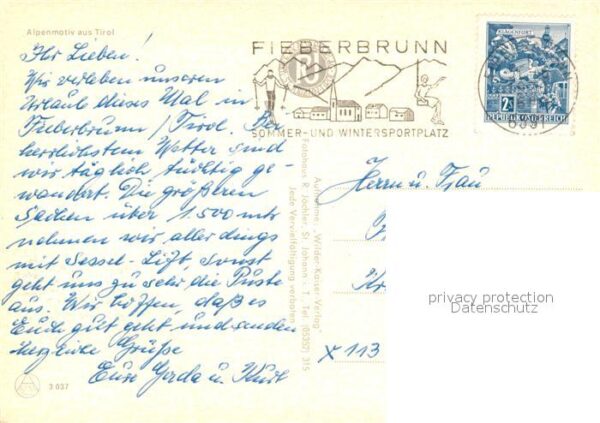 Alpenmotiv aus Tirol
Ihr Lieben!
Wir verleben unseren
Urlaub dieses Mal in
Fieberbrunn / Tirol. Bei
herrlichstem Wetter sind
wir täglich tüchtig ge-
wandert. Die größeren
Sachen über 1500 mtr
nehmen wir allerdings
mit Sessel-Lift, sonst
geht uns zu sehr die Puste
aus. Wir hoffen, daß es
Euch gut geht und senden
herzliche Grüße
Eure Gerda u. Kurt
3 037
FIEBERBRUNN
SOMMER- UND WINTERSPORTPLATZ
KLAGENFURT
2S
REPUBLIK ÖSTERREICH
6391
Aufnahme: "Wilder-Kaiser-Verlag"
Fotohaus R. Jöchler, St. Johann i. T. Tel. (05352) 315
Jede Vervielfältigung verboten
Herrn u. Frau
Kr
x 113
privacy protection
Datenschutz